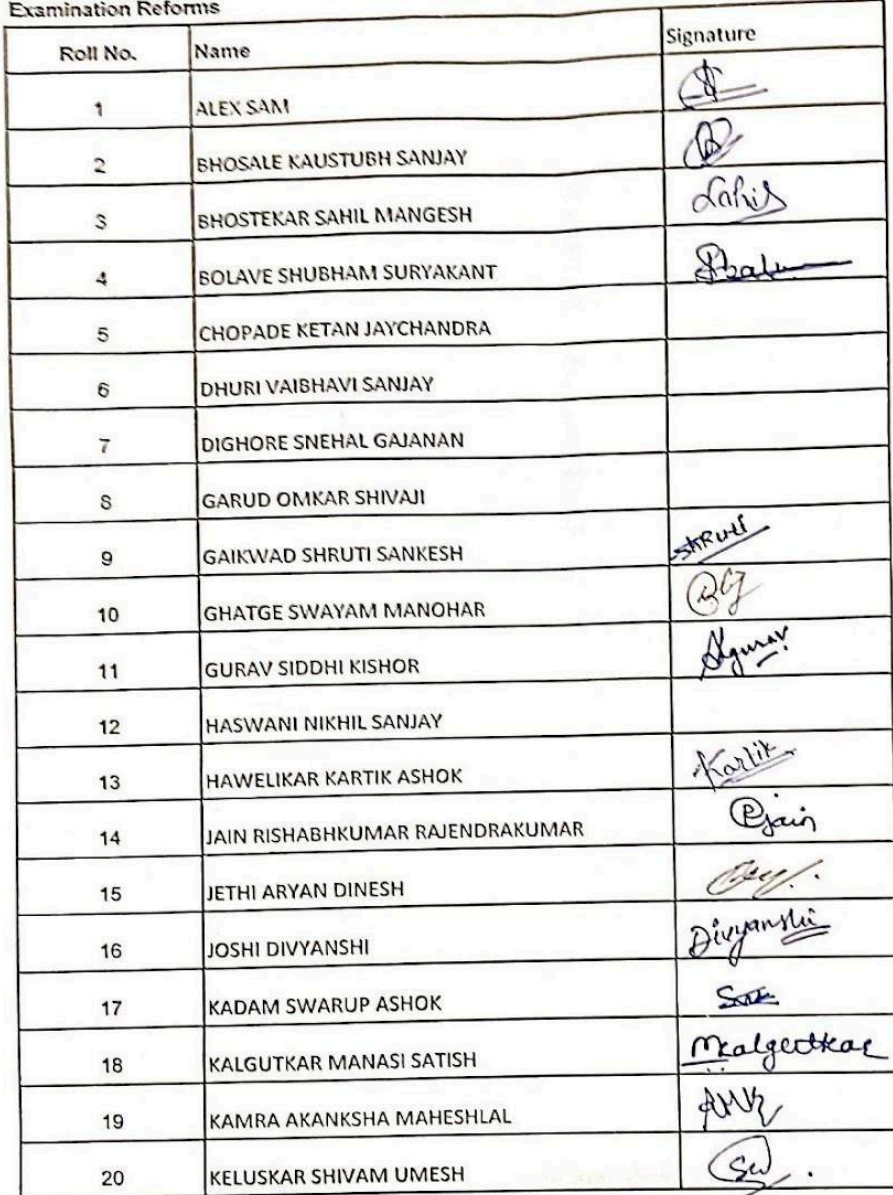 Examination Reforms
Roll No. Name Signature
1 ALEX SAM
2 BHOSALE KAUSTUBH SANJAY
3 BHOSTEKAR SAHIL MANGESH Sahil
4 BOLAVE SHUBHAM SURYAKANT
5 CHOPADE KETAN JAYCHANDRA
6 DHURI VAIBHAVI SANJAY
7 DIGHORE SNEHAL GAJANAN
8 GARUD OMKAR SHIVAJI
9 GAIKWAD SHRUTI SANKESH SHRUTI
10 GHATGE SWAYAM MANOHAR
11 GURAV SIDDHI KISHOR Skgurav
12 HASWANI NIKHIL SANJAY
13 HAWELIKAR KARTIK ASHOK Kartik
14 JAIN RISHABHKUMAR RAJENDRAKUMAR Rjain
15 JETHI ARYAN DINESH
16 JOSHI DIVYANSHI Divyanshi
17 KADAM SWARUP ASHOK
18 KALGUTKAR MANASI SATISH Mkalgutkar
19 KAMRA AKANKSHA MAHESHLAL
20 KELUSKAR SHIVAM UMESH